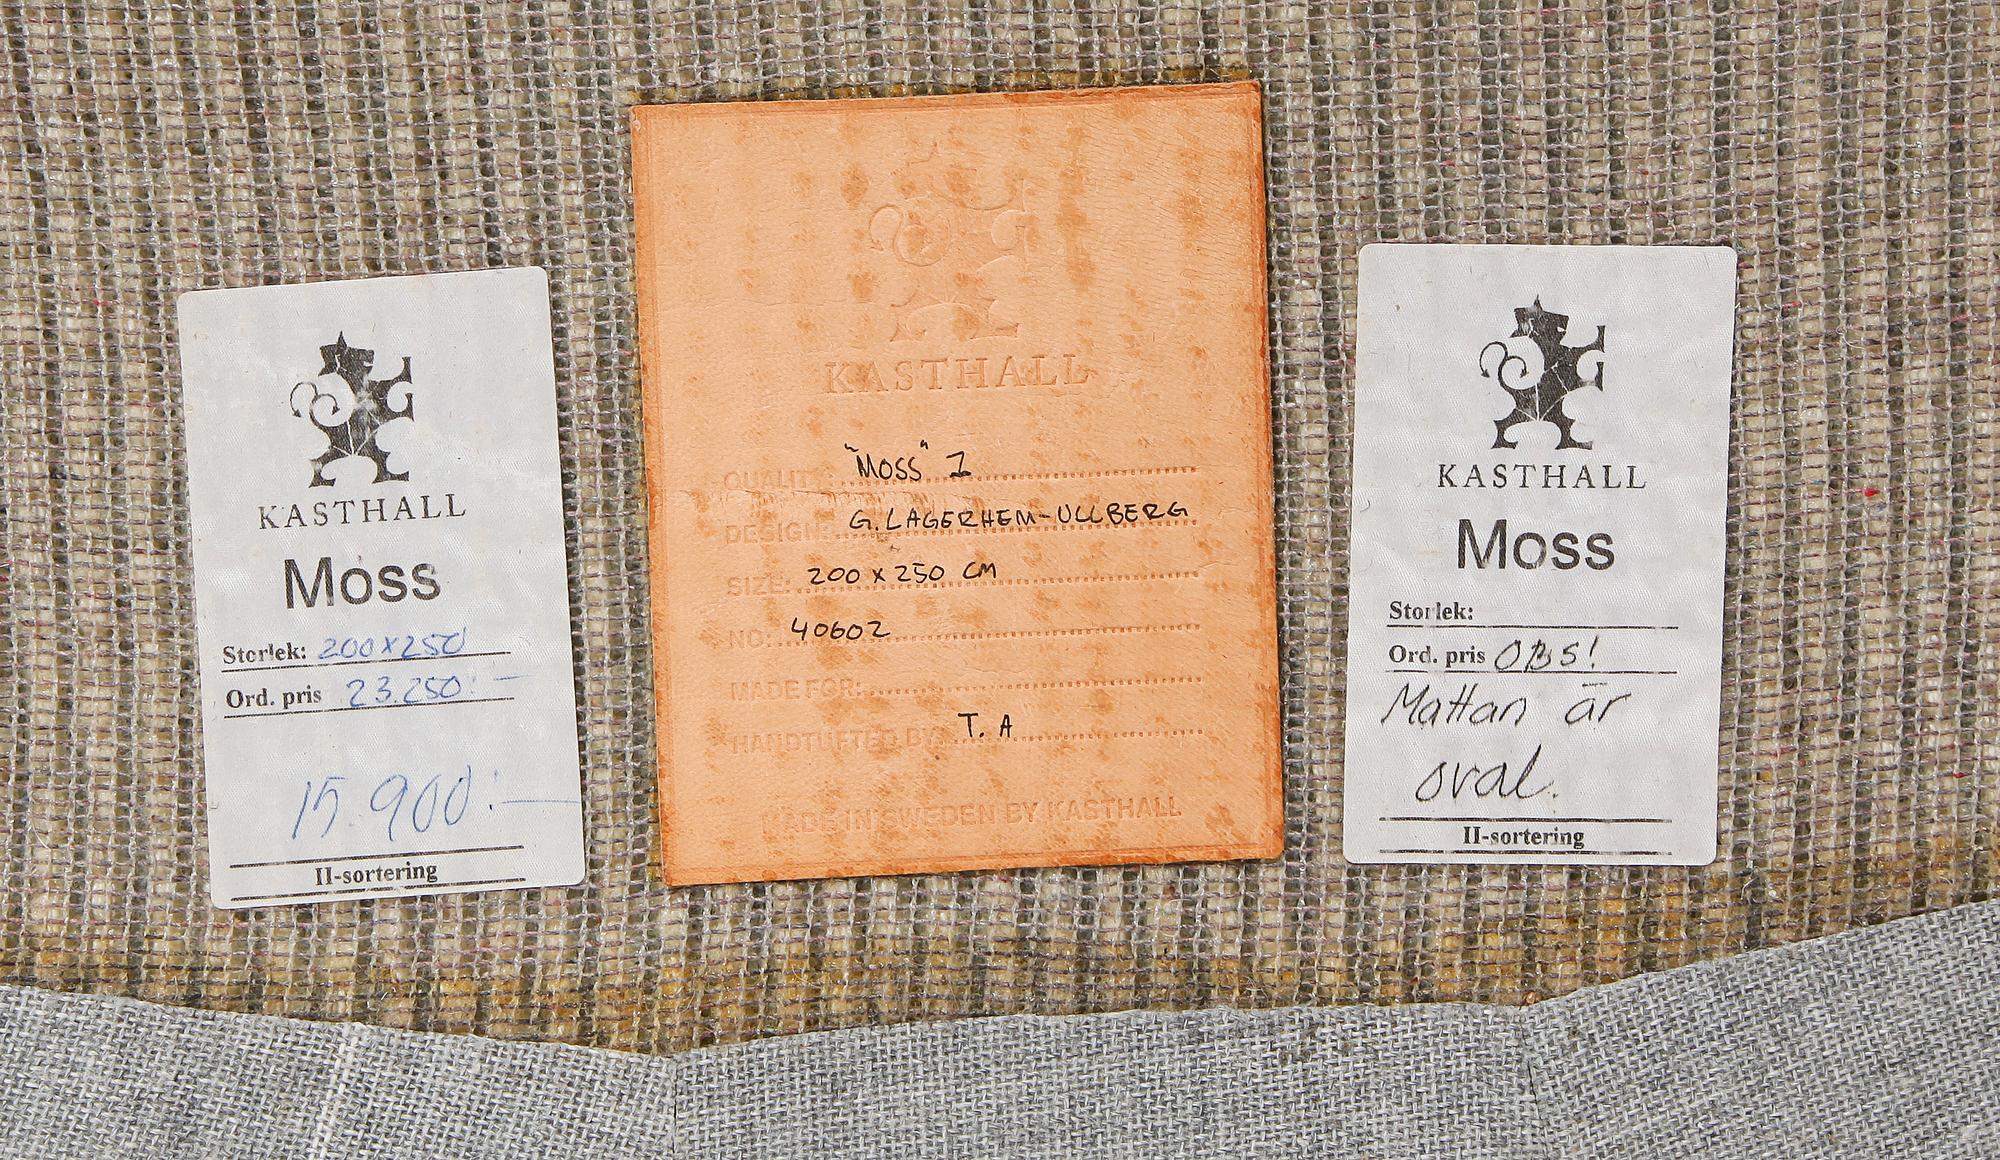 KASTHALL
Moss
Storlek: 200x250
Ord. pris 23.250:-
15.900:-
II-sortering
KASTHALL
QUALITY: "MOSS" 1
DESIGN: G. LAGERHEM-ULLBERG
SIZE: 200 x 250 CM
NO: 40602
MADE FOR:
HANDTUFTED BY: T. A
MADE IN SWEDEN BY KASTHALL
KASTHALL
Moss
Storlek:
Ord. pris OBS!
Mattan är
oval.
II-sortering